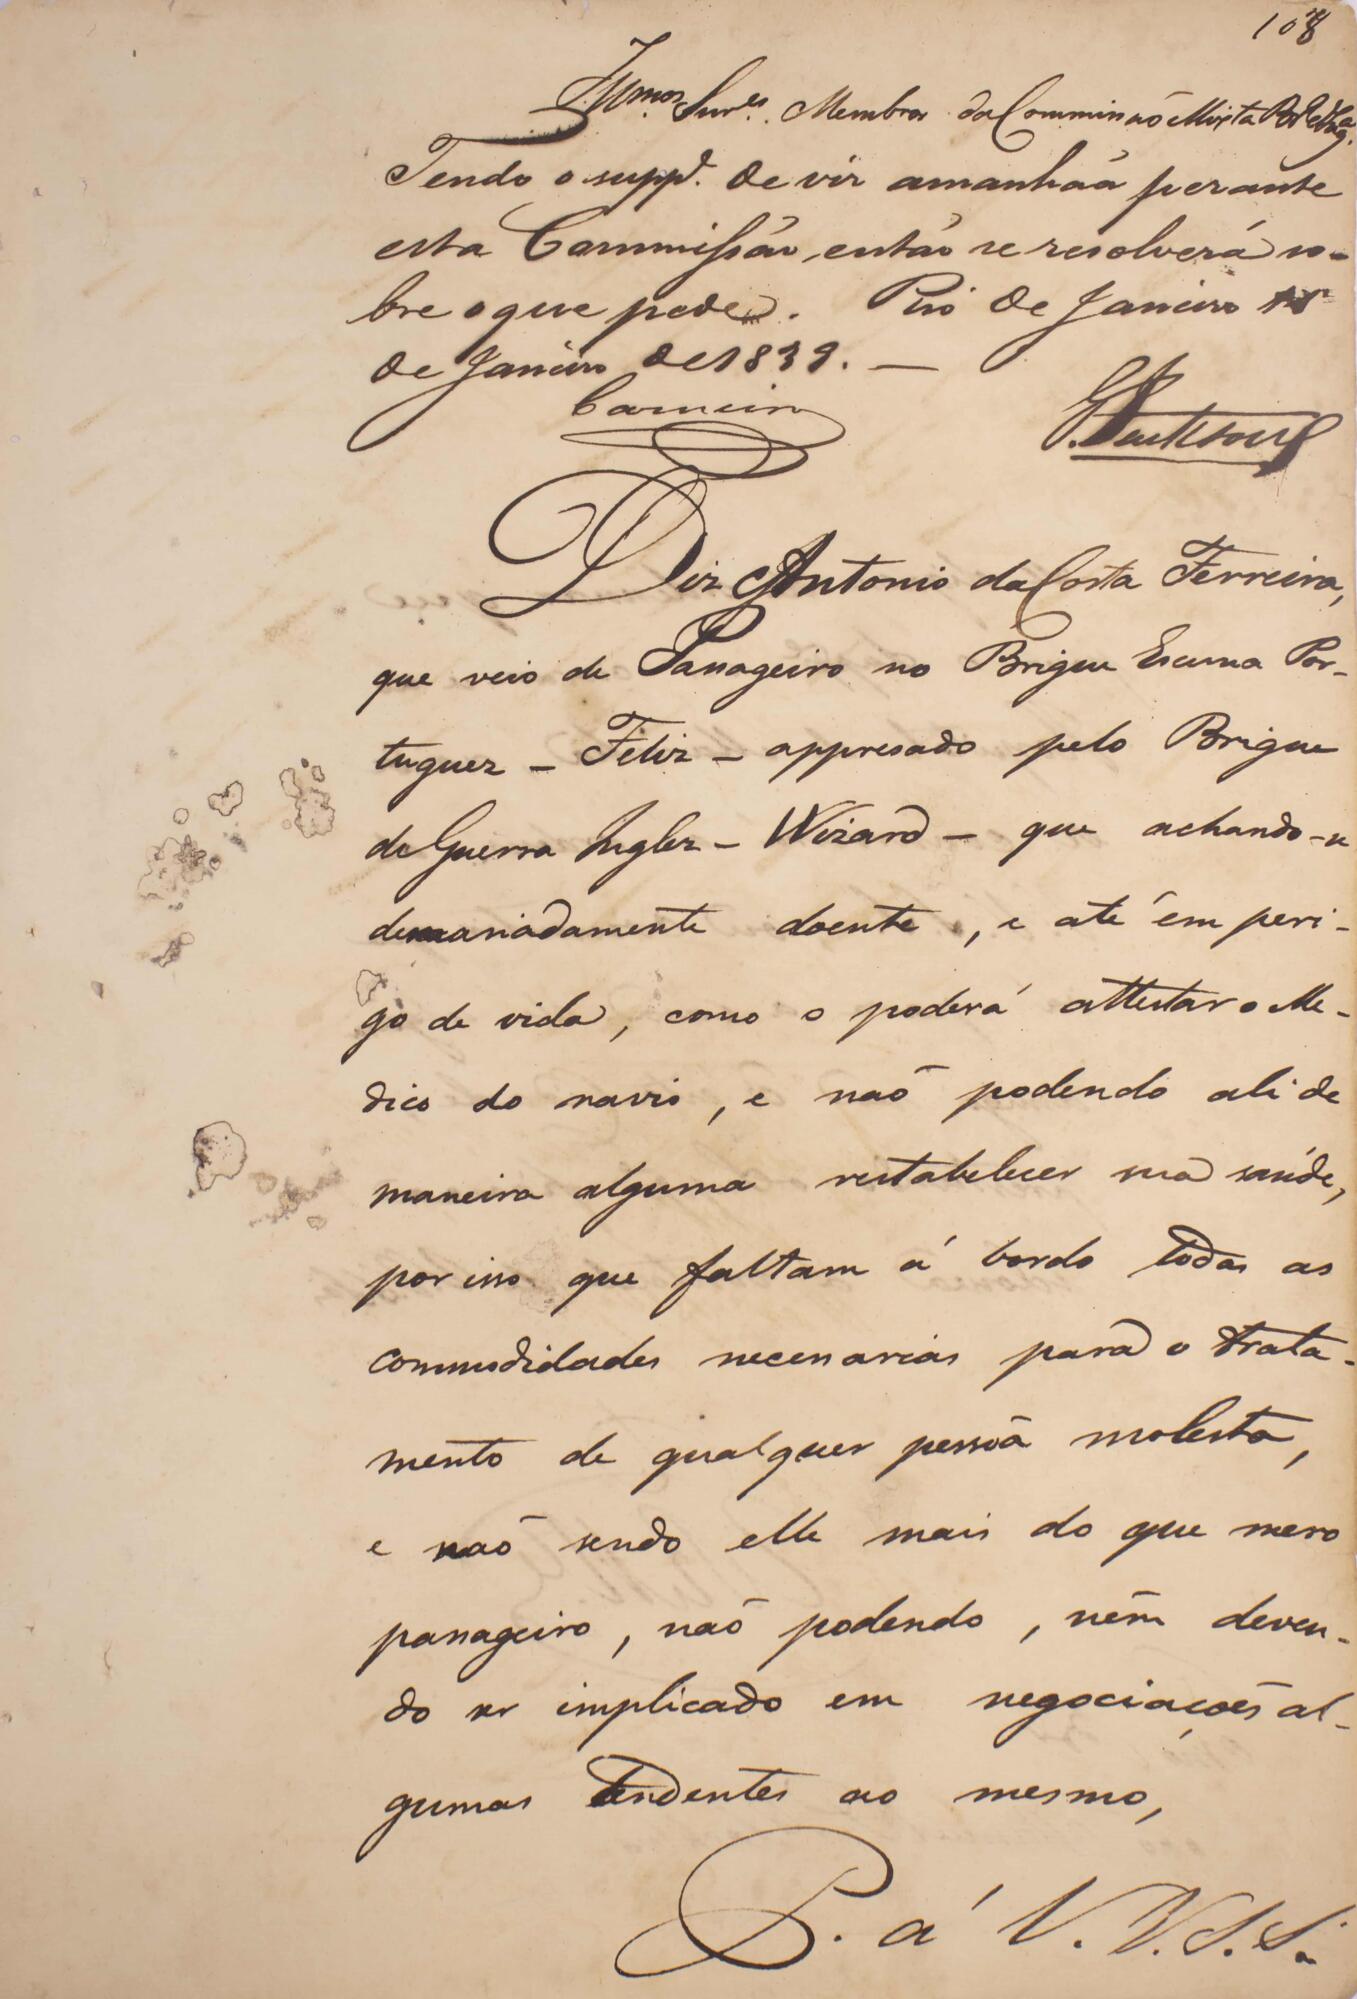 108
Illmos. Snres. Membros da Commissaõ Mixta Braz. e Ing.
Tendo o suppe. de vir amanhãa perante
esta Commissão, então se resolverá so-
bre o que pede. Rio de Janeiro
de Janeiro de 1839. —
Carneiro
Diz Antonio da Costa Ferreira,
que veio de Passageiro no Brigue Escuna Por-
tuguez – Feliz – appresado pelo Brigue
de Guerra Inglez – Wizard – que achando-se
demasiadamente doente, e até em peri-
go de vida, como o poderá attestar o Me-
dico do navio, e naõ podendo ali de
maneira alguma restabelecer sua saúde,
por isso que faltam á bordo todas as
commodidades necessarias para o trata-
mento de qualquer pessôa molesta,
e naõ sendo elle mais do que mero
passageiro, naõ podendo, nem deven-
do ser implicado em negociaçoẽs al-
gumas tendentes ao mesmo,
P. á V. V. S. S.